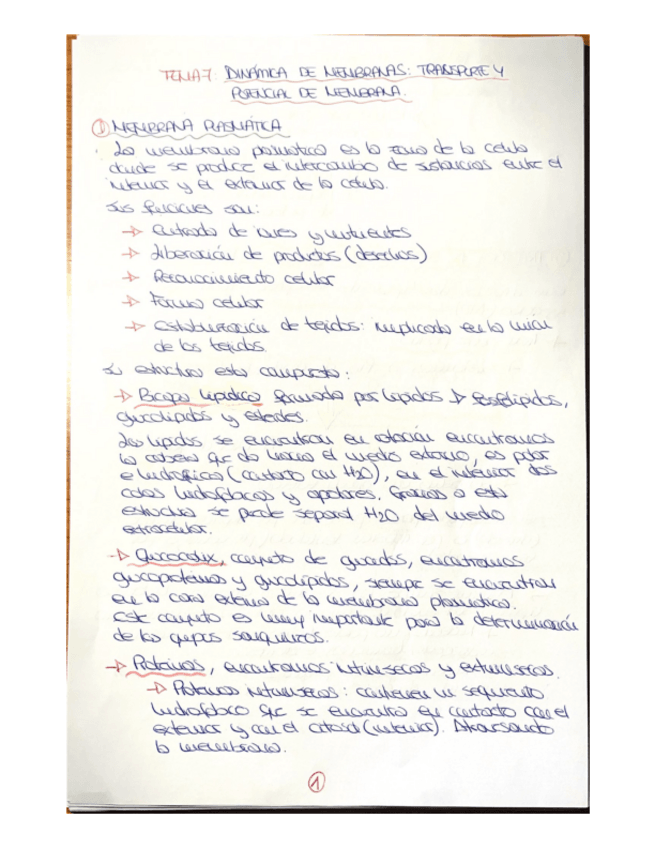 TEMA 7: DINÁMICA DE MEMBRANAS: TRANSPORTE Y
POTENCIAL DE MEMBRANA.
① MEMBRANA PLASMÁTICA
La membrana plasmática es la zona de la célula
donde se produce el intercambio de sustancias entre el
interior y el exterior de la célula.
Sus funciones son:
→ Entrada de iones y nutrientes
→ Liberación de productos (desechos)
→ Reconocimiento celular
→ Forma celular
→ Estabilización de tejidos: implicada en la unión
de los tejidos.
Su estructura está compuesta:
→ Bicapa lipídica formada por lípidos → fosfolípidos,
glucolípidos y esteroles.
Los lípidos se encuentran en rotación encontramos
la cabeza que da hacia el medio externo, es polar
e hidrofílica (contacto con H2O), en el interior dos
colas hidrofóbicas y apolares. Gracias a esta
estructura se puede separar H2O del medio
extracelular.
→ Glucocalix, conjunto de glúcidos, encontramos
glucoproteínas y glucolípidos, siempre se encuentran
en la cara externa de la membrana plasmática.
Este conjunto es muy importante para la determinación
de los grupos sanguíneos.
→ Proteínas, encontramos intrínsecas y extrínsecas.
→ Proteínas intrínsecas: contienen un segmento
hidrofóbico que se encuentra en contacto con el
exterior y con el citosol (interior). Atravesando
la membrana.
①